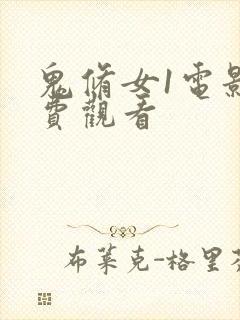 鬼脩女1電影
費觀看
布萊克-格里